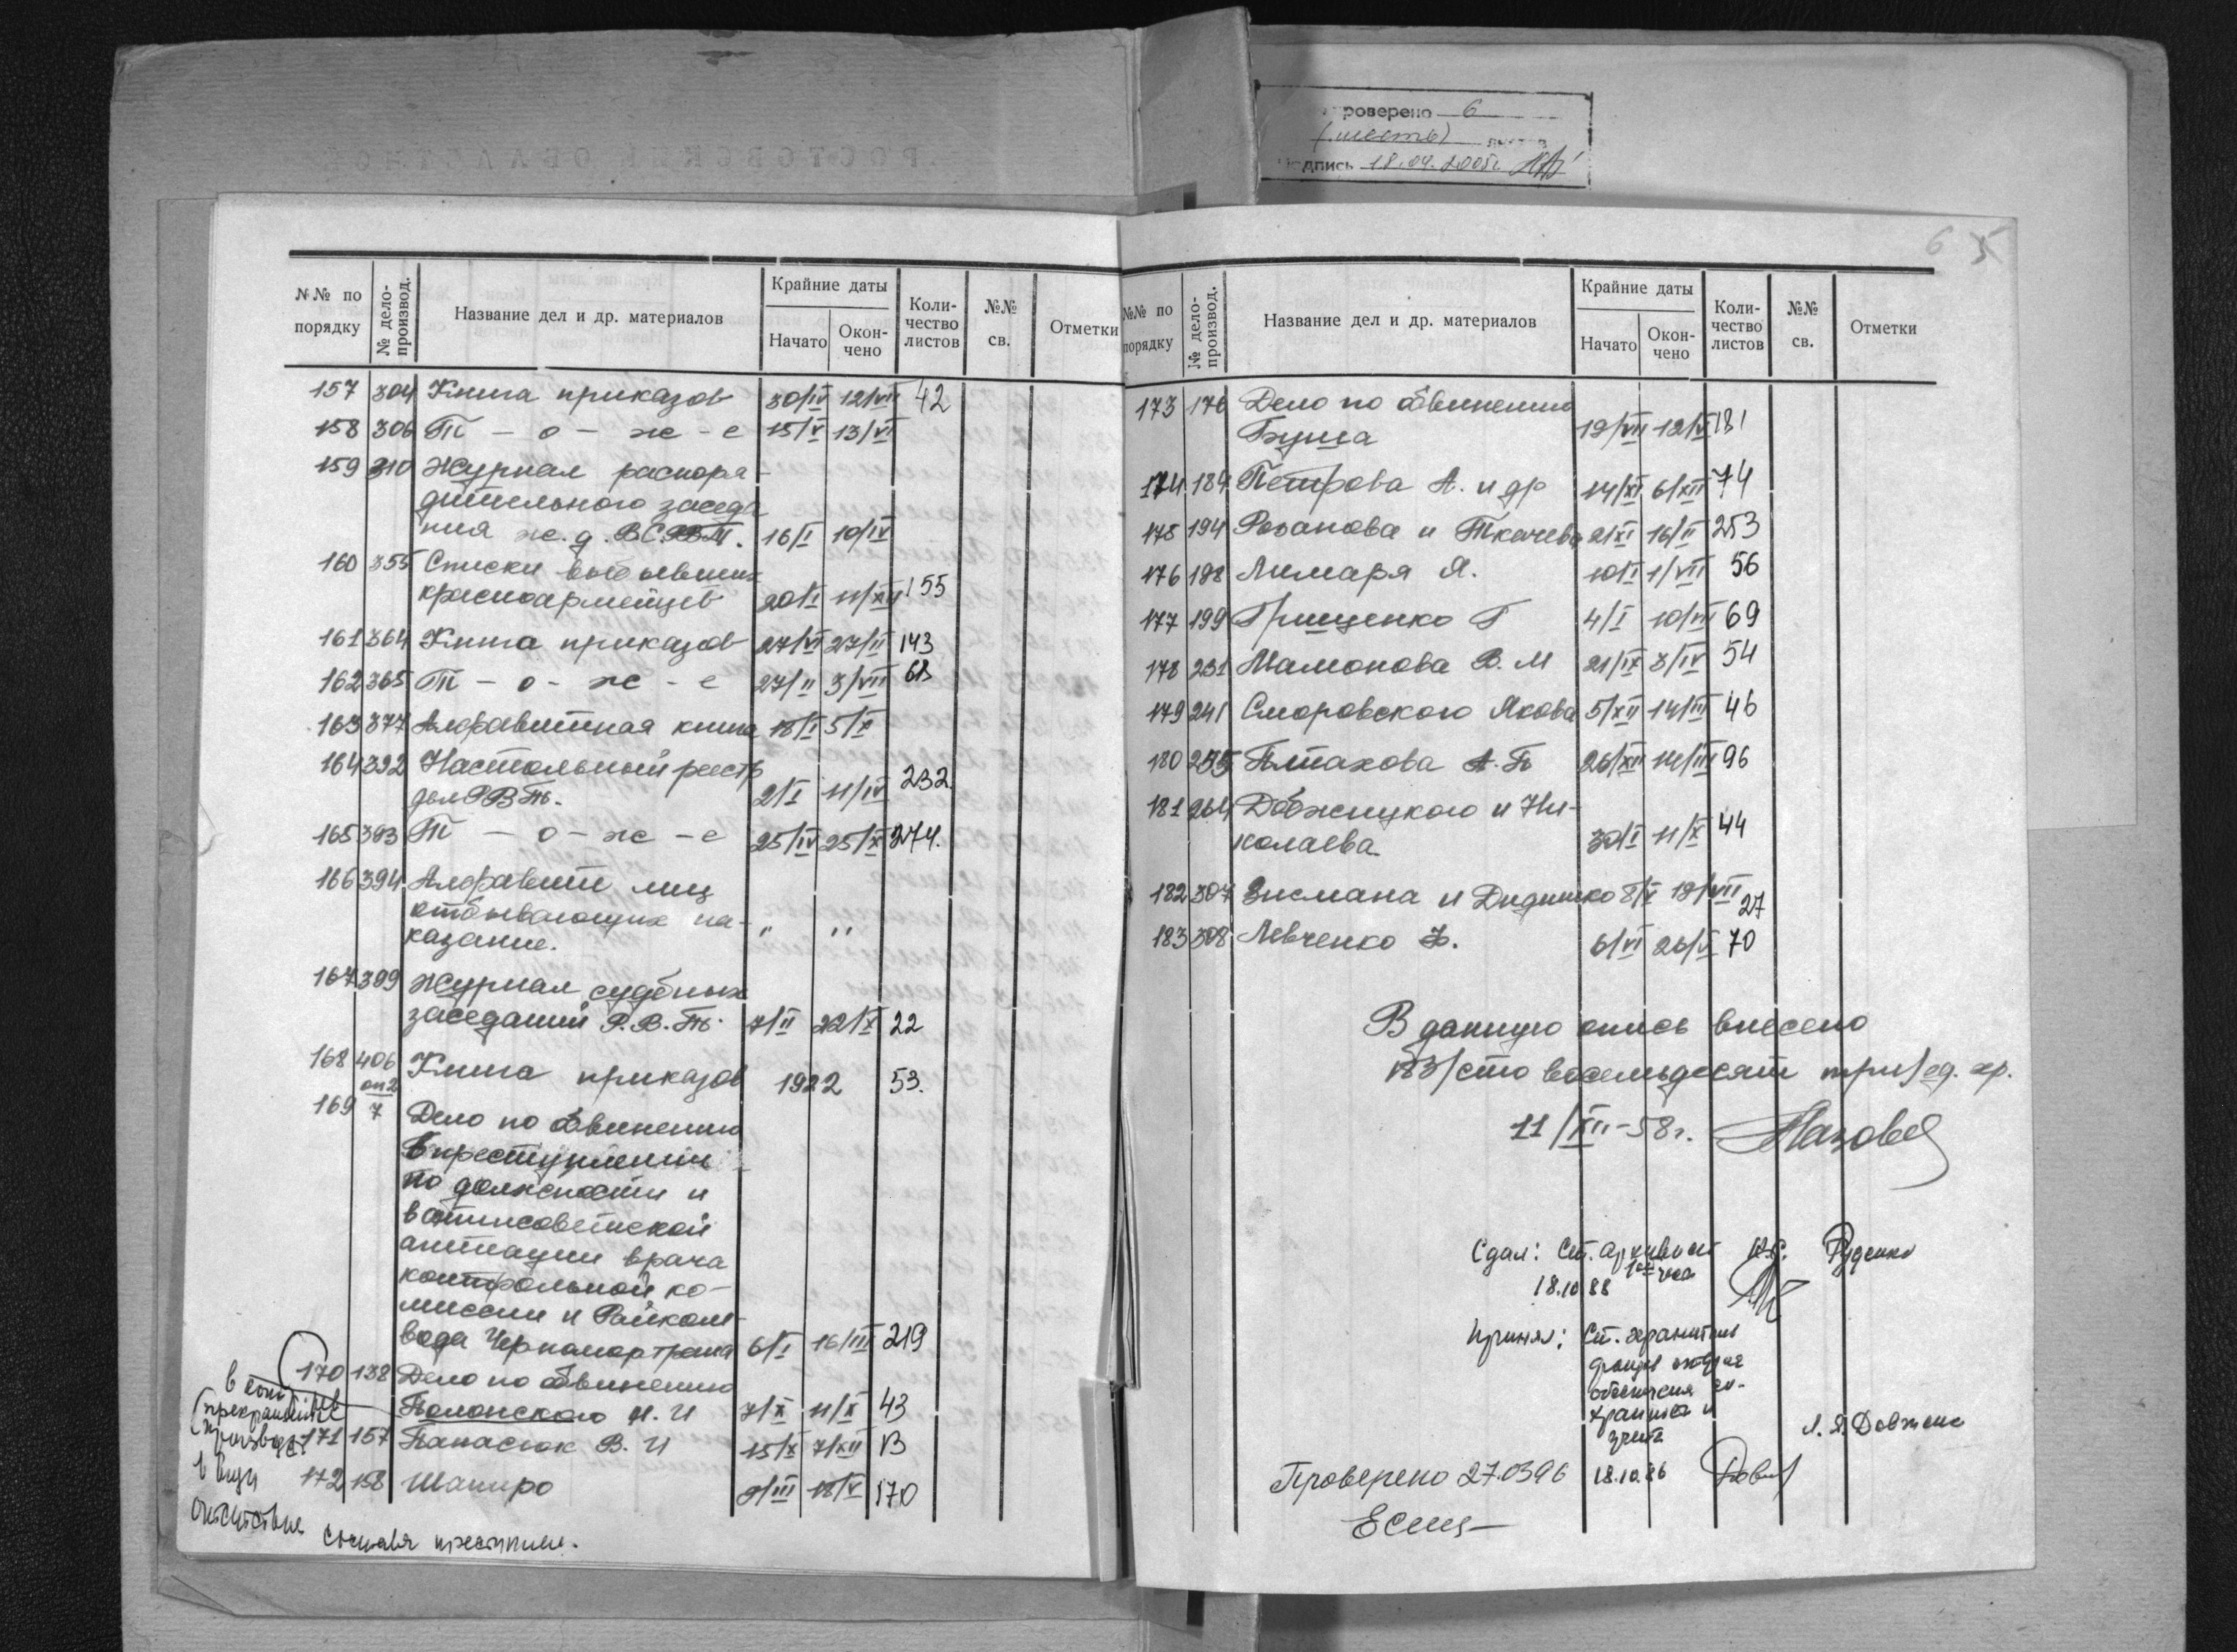 РОСТОВСКИЙ ОБЛАСТНОЙ
роверено 6
(шесть)
дпись 18.04.2005г.
6 5
№№ по порядку № дело-произвoд. Название дел и др. материалов Крайние даты Начато Окон-чено Коли-чество листов №№ св. Отметки
157 304 Книга приказов 30/IV 12/VII 42
158 306 Т - о - ж - е 15/V 13/VI
159 310 Журнал распоря-
дительного заседа
ния ж.д. ВС. 16/I 10/IV
160 355 Списки выбывших
красноармейцев 20/I 11/XII 155
161 364 Книга приказов 27/VI 27/II 143
162 365 Т - о - ж - е 27/II 3/VII 61
163 377 Алфавитная книга 18/I 5/X
164 392 Настольный реестр
дел РВТ. 2/I 11/IV 232
165 393 Т - о - ж - е 25/IV 25/X 274.
166 394 Алфавит лиц
отбывающих на- " "
казание.
167 399 Журнал судебных
заседаний Р.В.Тр. 7/II 22/X 22
168 406 Книга приказов 1922 53.
оп2
169 7 Дело по обвинению
в преступлении
по должности и
в антисоветской
агитации врача
контрольной ко-
миссии и Райком-
вода Черномортрана 6/I 16/III 219
170 138 Дело по обвинению
Полонского И. И 7/X 11/X 43
171 157 Панасюк В. И 15/X 7/XII 13
172 158 Шапиро 9/III 18/V 170
в виду
отсутствия состава преступлен.
№№ по порядку № дело-произвoд. Название дел и др. материалов Крайние даты Начато Окон-чено Коли-чество листов №№ св. Отметки
173 176 Дело по обвинению
Буша 19/VII 12/V 181
174 184 Петрова А. и др 14/XI 6/XII 74
175 194 Розанова и Ткачева 21/XI 16/II 253
176 198 Лимаря Я. 10/I 1/VII 56
177 199 Грищенко Г 4/I 10/III 69
178 231 Мамонова В. М 21/IX 3/IV 54
179 241 Сморовского Якова 5/XII 14/III 46
180 255 Птахова А. П 26/XII 14/III 96
181 264 Добжицкого и Ни-
колаева 30/I 11/X 44
182 307 Зисмана и Дидишко 8/V 19/VII 27
183 308 Левченко Ф. 6/VI 26/X 70
В данную опись внесено
183/сто восемьдесят три/ед. хр.
11/XII-58г.
Сдал: Ст. архивист Руденко
18.10 88
Принял: Ст. хранитель
фондов отдела
обеспечения со-
хранности и
учета Л. Я. Довженко
Проверено 27.0396 18.10.86